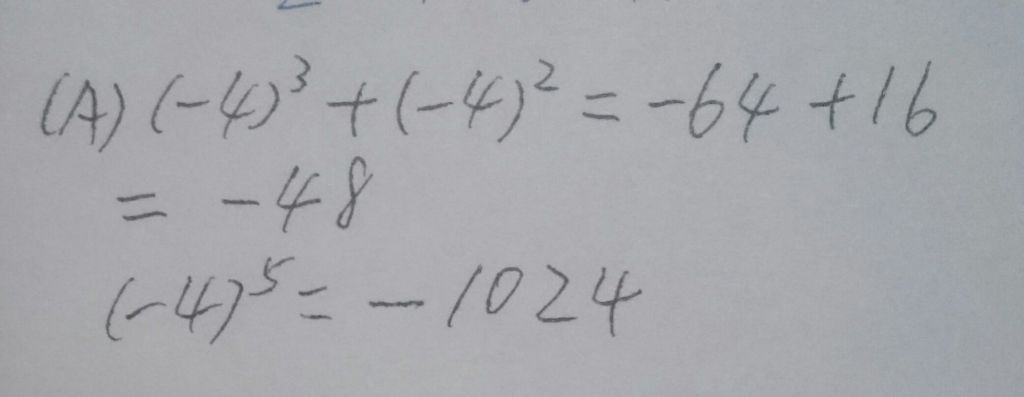 (A) (-4)³ + (-4)² = -64 + 16
= -48
(-4)⁵ = -1024